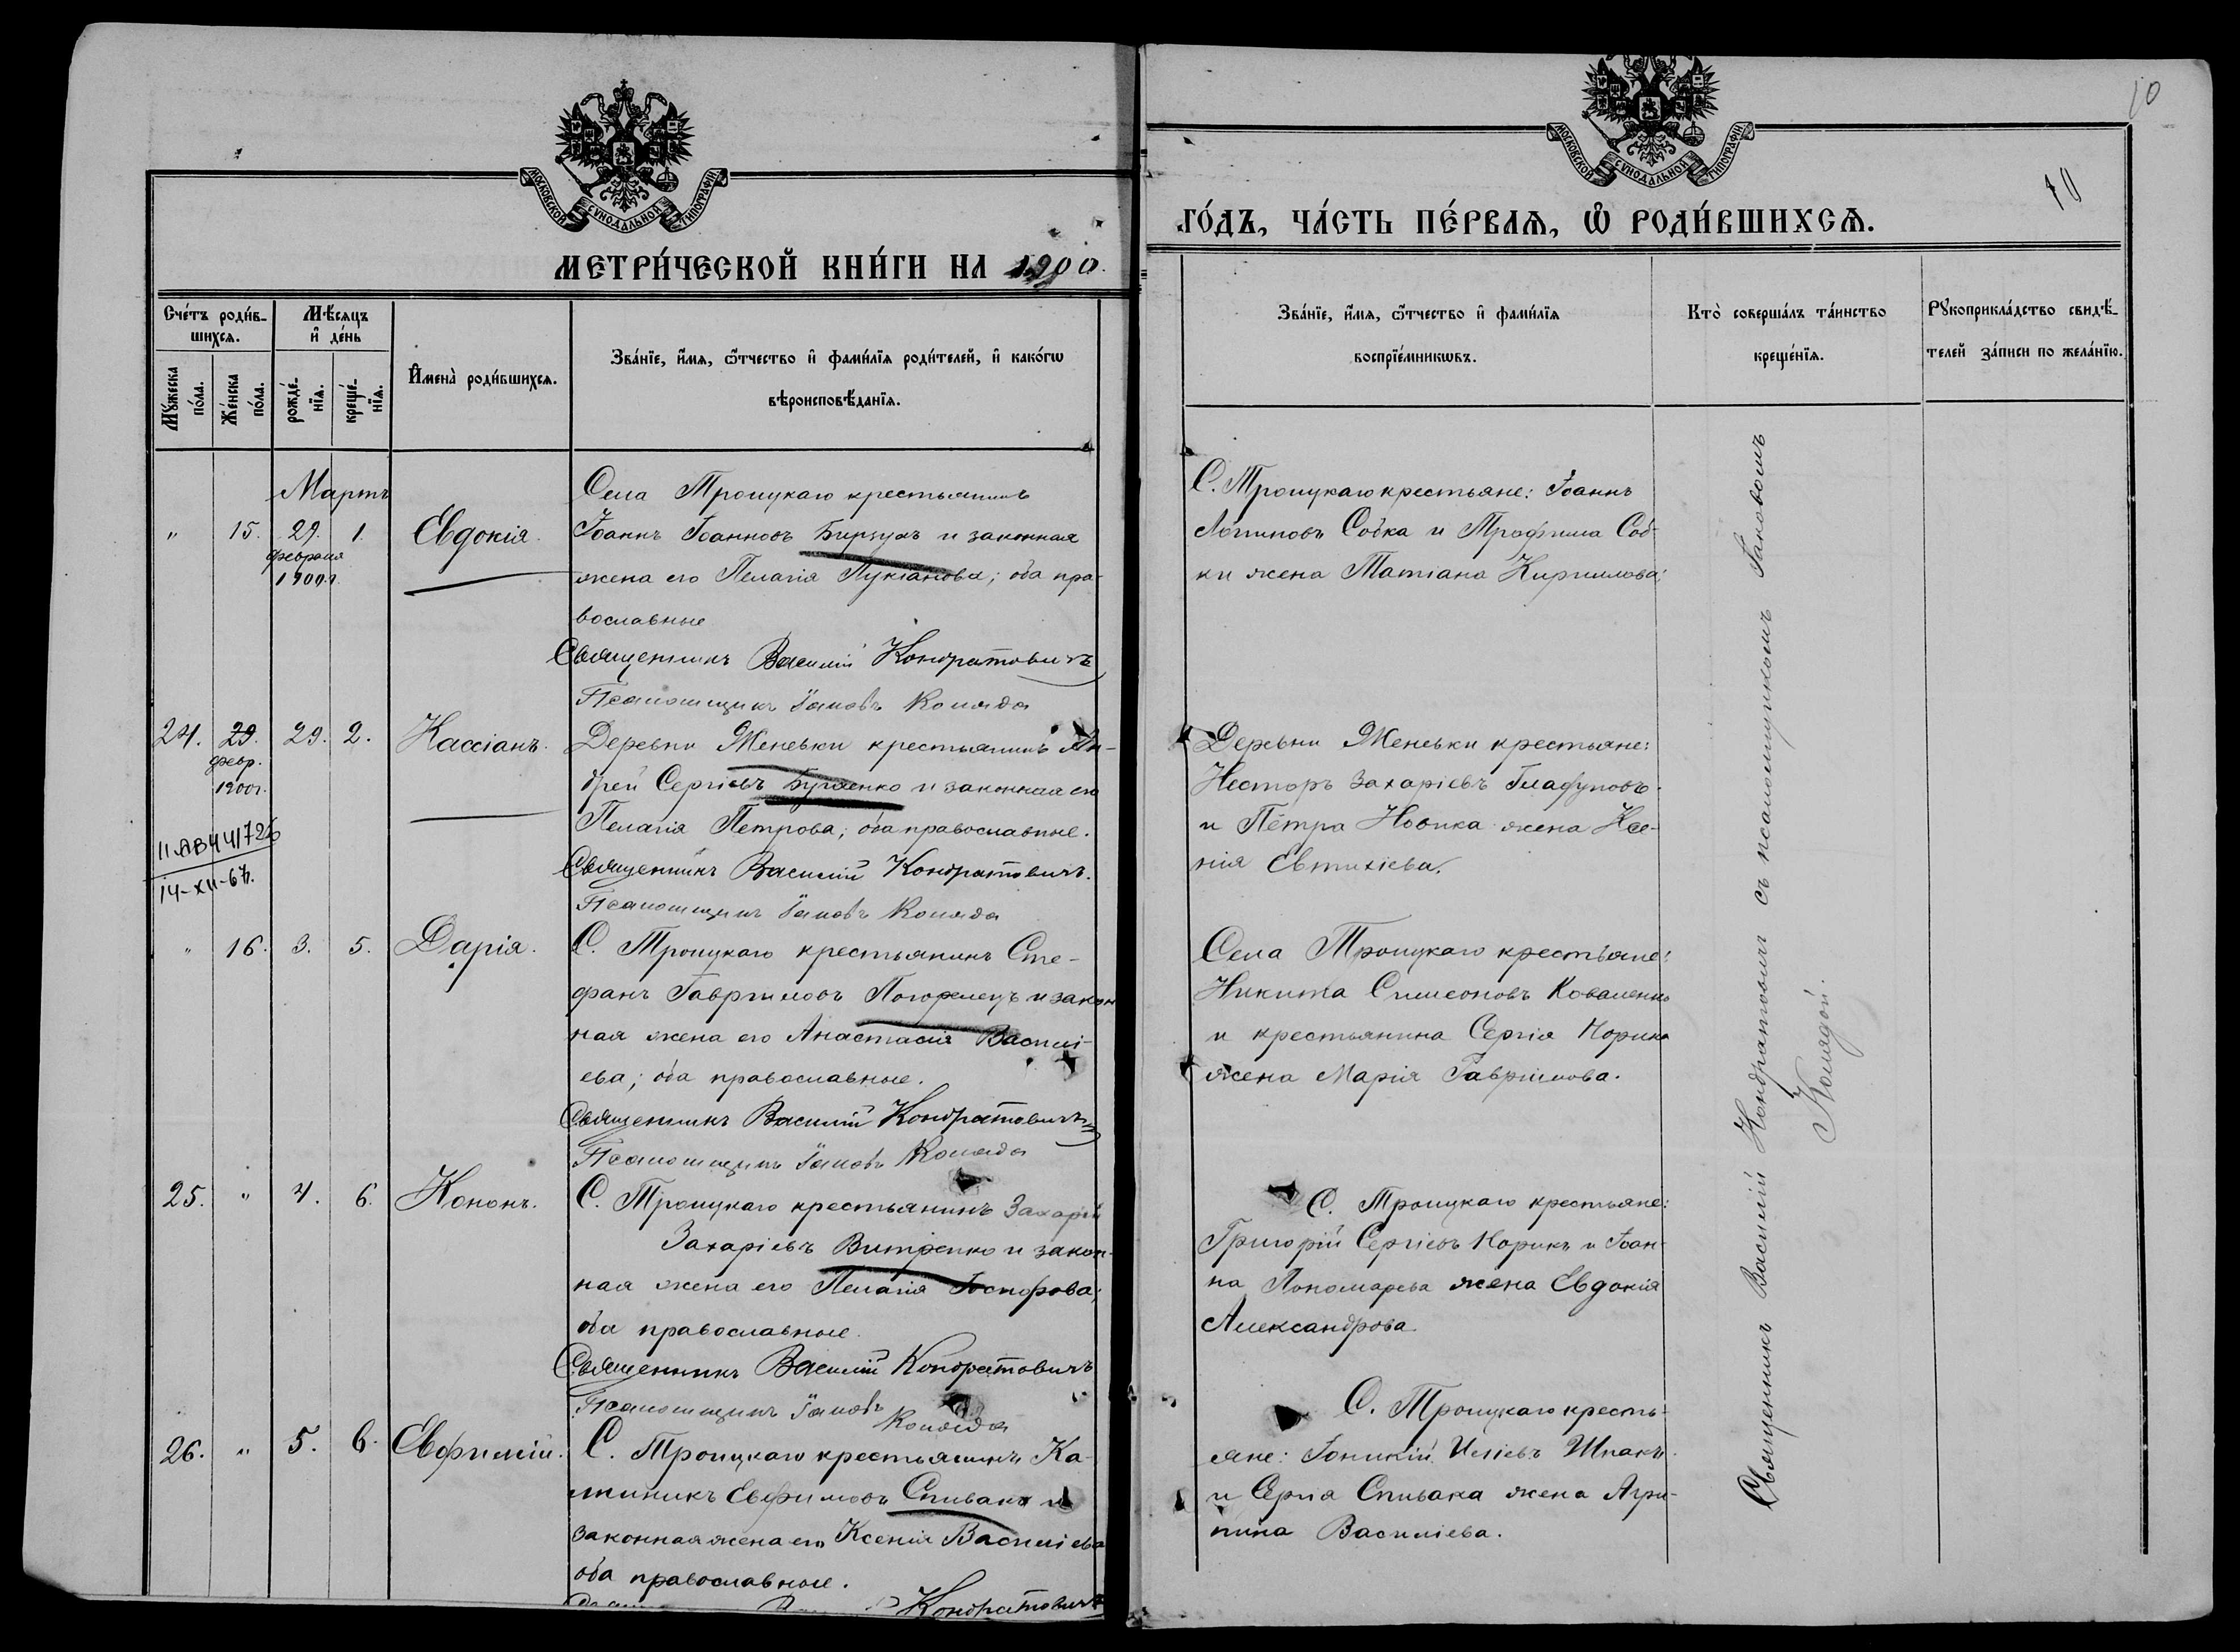 МОСКОВСКОЙ СѴНОДАЛЬНОЙ ТИПОГРАФІИ
МЕТРИ́ЧЕСКОЙ КНИ́ГИ НА 1900.
Сче́тъ роди́в-
шихсѧ.
Мѣ́сѧцъ
и҆ де́нь
Мꙋ́жеска
по́ла.
Же́нска
по́ла.
рожде́-
нїѧ.
креще́-
нїѧ.
И҆мена̀ роди́вшихсѧ.
Зва́нїе, и҆́мѧ, ѻ҆́тчество и҆ фами́лїѧ роди́телей, и҆ како́гѡ
вѣроисповѣ́данїѧ.
Мартъ
" 15. 29. 1. Евдокія.
февраля
1900 г.
Села Троицкаго крестьянинъ
Іоаннъ Іоанновъ Бирзулъ и законная
жена его Пелагія Лукіанова; оба пра-
вославные
Священникъ Василій Кондратовичъ
Псаломщикъ Іаковъ Коляда
24. 29. 29. 2. Кассіанъ.
февр.
1900 г.
II-АВ 441726
14-XII-67г.
Деревни Женевки крестьянинъ Ан-
дрей Сергіевъ Бугаенко и законная его
Пелагія Петрова; оба православные.
Священникъ Василій Кондратовичъ.
Псаломщикъ Іаковъ Коляда
" 16. 3. 5. Дарія.
С. Троицкаго крестьянинъ Сте-
фанъ Гавріиловъ Погорелецъ и закон
ная жена его Анастасія Василі-
ева; оба православные.
Священникъ Василій Кондратовичъ
Псаломщикъ Іаковъ Коляда
25. " 4. 6. Кононъ.
С. Троицкаго крестьянинъ Захарій
Захаріевъ Витренко и закон-
ная жена его Пелагія Іосифова;
оба православные.
Священникъ Василій Кондратовичъ
Псаломщикъ Іаковъ
Коляда
26. " 5. 6. Евфимій.
С. Троицкаго крестьянинъ Ка-
линикъ Евфимовъ Спивакъ и
законная жена его Ксенія Василіева
оба православные.
Кондратовичъ
10
МОСКОВСКОЙ СѴНОДАЛЬНОЙ ТИПОГРАФІИ
10
ГО́ДЪ, ЧА́СТЬ ПЕ́РВАѦ, Ѡ҆ РОДИ́ВШИХСѦ.
Зва́нїе, и҆́мѧ, ѻ҆́тчество и҆ фами́лїѧ
воспрїе́мникѡвъ.
Кто̀ соверша́лъ та́инство
креще́нїѧ.
Рꙋкоприкла́дство свидѣ́-
телей за́писи по жела́нїю.
С. Троицкаго крестьяне: Іоаннъ
Логиновъ Собка и Трофима Соб-
ки жена Татіана Кириллова;
Деревни Женевки крестьяне:
Несторъ Захаріевъ
и Петра Новика жена Ксе-
нія Евтихіева.
Села Троицкаго крестьяне:
Никита Симеоновъ Коваленко
и крестьянина Сергія Норика
жена Марія Гавріилова.
С. Троицкаго крестьяне:
Григорій Сергіевъ Норикъ и Іоан-
на Пономарева жена Евдокія
Александрова.
С. Троицкаго кресть-
яне: Іоникій Иліевъ Шпакъ
и Сергія Спивака жена Агри-
пина Василіева.
Священникъ Василій Кондратовичъ съ псаломщикомъ Іаковомъ
Колядой.